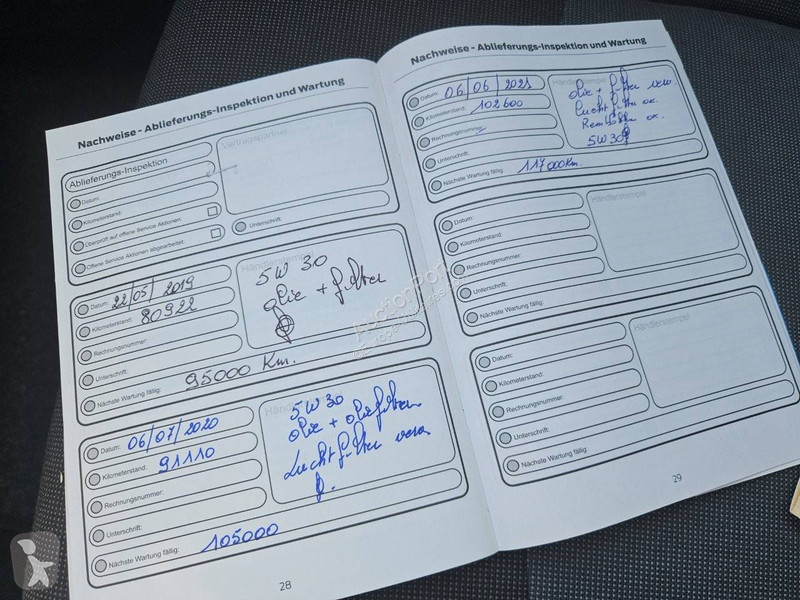 Nachweise - Ablieferungs-Inspektion und Wartung
Ablieferungs-Inspektion
Vertragspartner
Datum:
Kilometerstand:
Überprüft auf offene Service Aktionen:
Offene Service Aktionen abgearbeitet:
Unterschrift:
Datum: 22/05/2019
Kilometerstand: 80922
Rechnungsnummer:
Unterschrift:
Nächste Wartung fällig: 95000 Km.
Händlerstempel
5W30
olie + filter
Datum: 06/07/2020
Kilometerstand: 91110
Rechnungsnummer:
Unterschrift:
Nächste Wartung fällig: 105000
5W30
olie + oliefilter
Lucht filter verv
28
Nachweise - Ablieferungs-Inspektion und Wartung
Datum: 06/06/2021
Kilometerstand: 102600
Rechnungsnummer:
Unterschrift:
Nächste Wartung fällig: 117000Km.
Händlerstempel
olie + filter verv.
lucht filter ok.
ok.
5W30
Datum:
Kilometerstand:
Rechnungsnummer:
Unterschrift:
Nächste Wartung fällig:
Händlerstempel
Datum:
Kilometerstand:
Rechnungsnummer:
Unterschrift:
Nächste Wartung fällig:
Händlerstempel
29